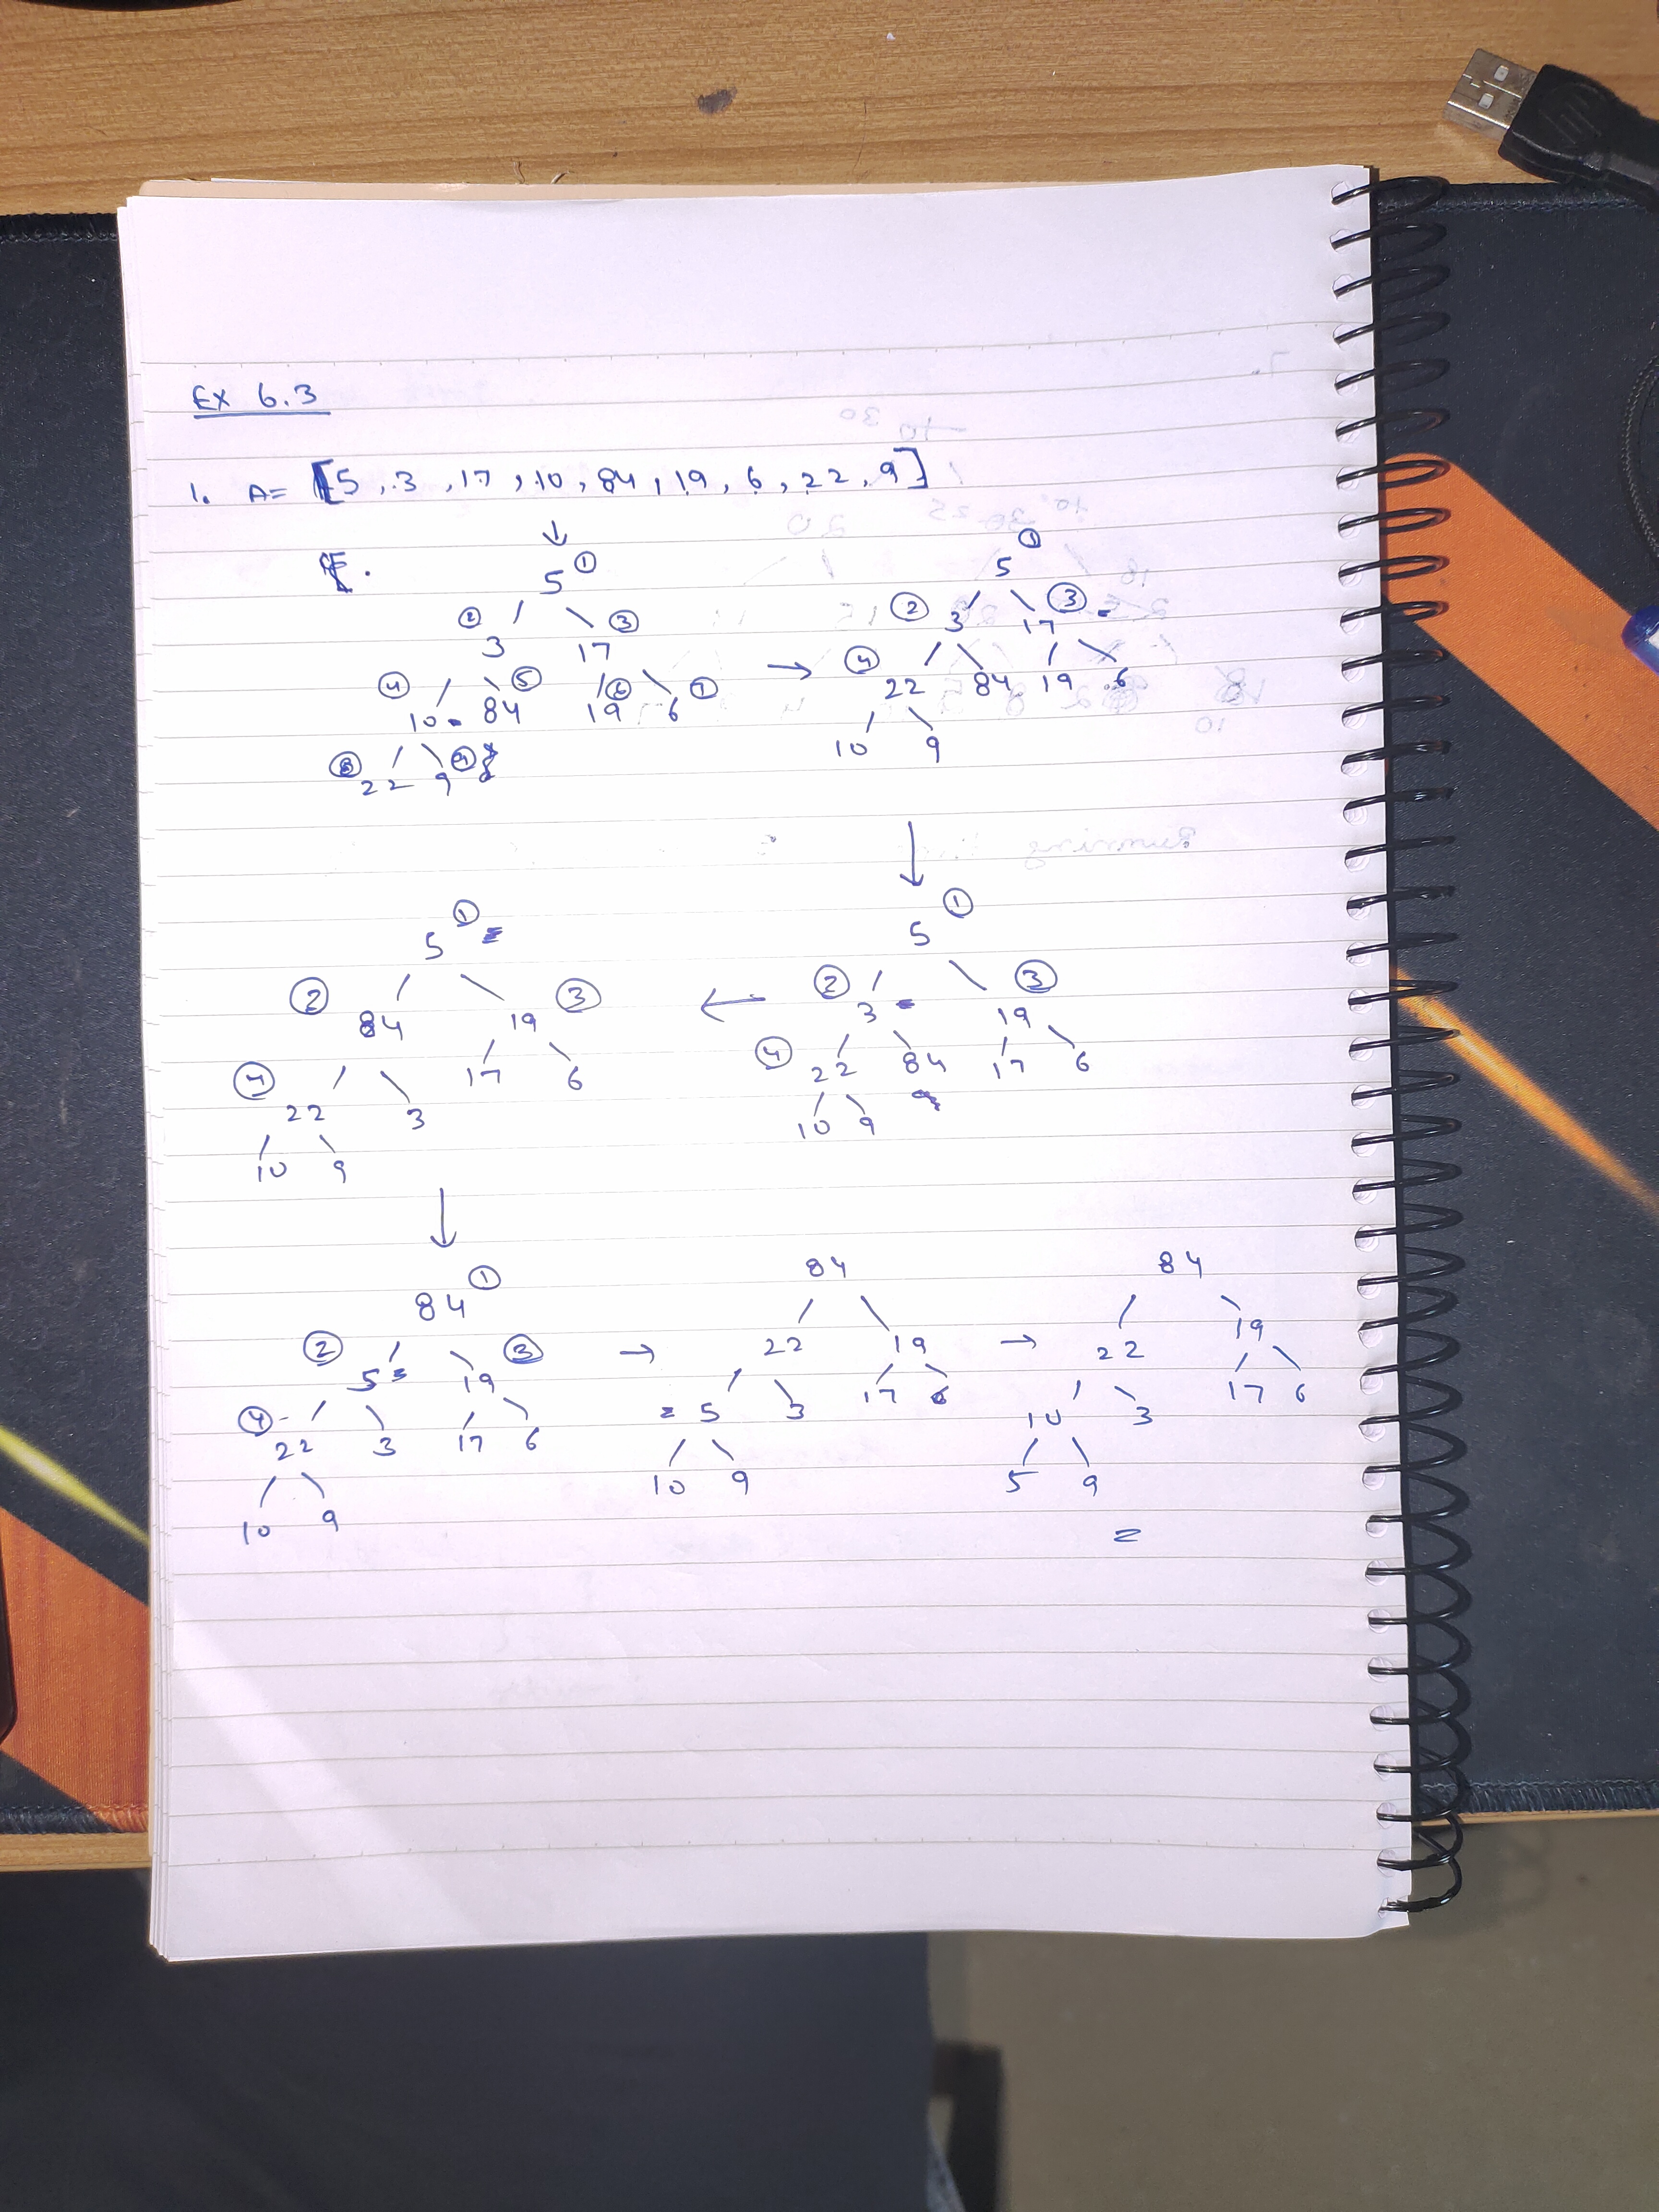 Ex 6.3
1. A= [5, 3, 17, 10, 84, 19, 6, 22, 9]
↓
5 ①
② ③
3 17
④ ⑤ ⑥ ⑦
10 84 19 6
⑧ ⑨
22 9
→
5 ①
② ③
3 17
④
22 84 19 6
10 9
↓
5 ①
② ③
3 19
④
22 84 17 6
10 9
←
5 ①
② ③
84 19
17 6
④
22 3
10 9
↓
84 ①
② ③
5 19
④
22 3 17 6
10 9
→
84
22 19
5 3 17 6
10 9
→
84
22 19
10 3 17 6
5 9